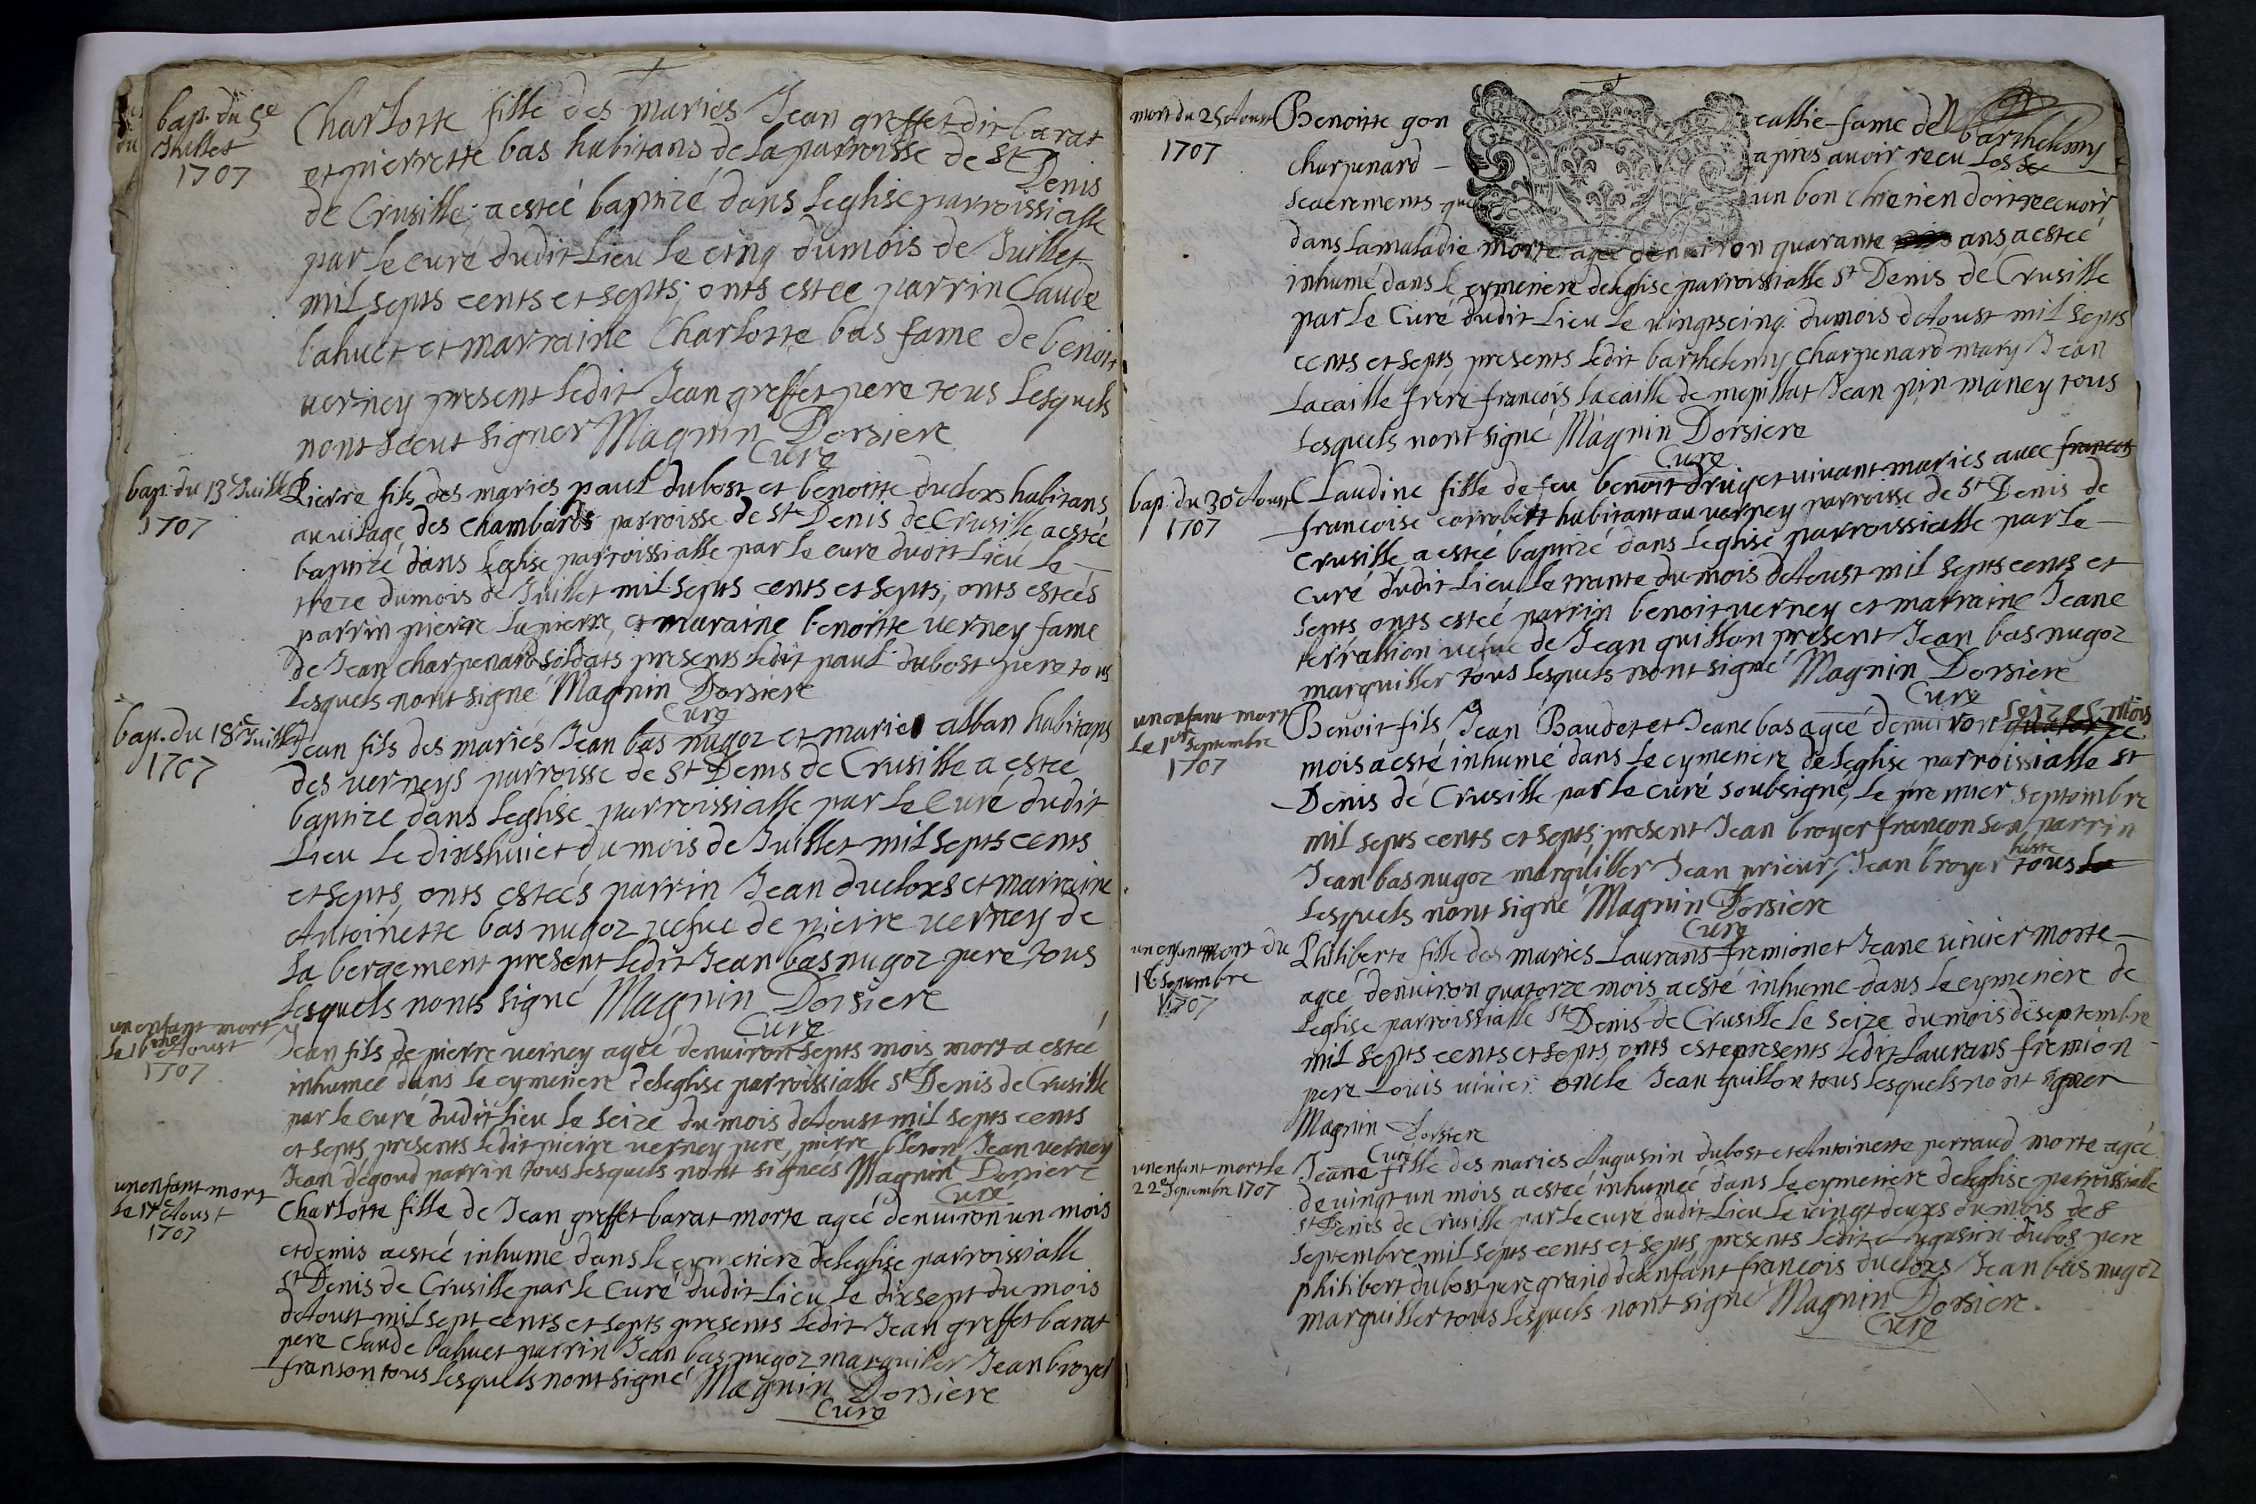 bap. du 5e
Juillet
1707
Charlotte fille des mariés Jean greffet dit barat
et pierrette bas habitans de la parroisse de St
Denis
de Crusille; a esteé baptizé dans leglise parroissialle
par le curé dudit Lieu le cinq du mois de Juillet
mil septs cents et septs; onts estee parrin Claude
bahuet et marraine Charlotte bas fame de benoit
verney present ledit Jean greffet pere tous Lesquels
nont sceut signer Magnin Dorsiere
Curé
bap. du 13e Juillet
1707
Pierre fils des mariés paul dubost et benoitte ducloxs habitans
au vilage des Chambards parroisse de St Denis de Crusille a esteé
baptizé dans leglise parroissialle par le cure dudit Lieu le
treze du mois de Juillet mil septs cents et septs, onts esteés
parrin pierre Lapierre, et maraine benoitte verney fame
de Jean charpenard soldats presents ledit paul dubost pere tous
Lesquels nont signé Magnin Dorsiere
Curé
bap. du 18e Juillet
1707
Jean fils des mariés Jean bas nugoz et marie alban habitans
des verneys parroisse de St Denis de Crusille a estee
baptize dans leglise parroissialle par le Curé dudit
Lieu le dixshuict du mois de Juillet mil septs cents
et septs, onts esteés parrin Jean ducloxs et marraine
Antoinette bas nugoz vefue de pierre verney de
La bergement present ledit Jean bas nugoz pere tous
Lesquels nonts signé Magnin Dorsiere
Curé
un enfant mort
le 16me Aoust
1707
Jean fils de pierre verney ageé denuiron septs mois mort a esteé
inhumeé dans le cymetiere deleglise parroissialle St Denis de Crusille
par le curé dudit Lieu le seize du mois de Aoust mil septs cents
et septs presents ledit pierre verney pere pierre Jean verney
Jean degoud parrin tous lesquels nont signeés Magnin Dorsiere
Curé
un enfant mort
le 17e Aoust
1707
Charlotte fille de Jean greffet barat morte ageé denuiron un mois
et demis a esteé inhumé dans le cymetiere deleglise parroissialle
St Denis de Crusille par le Curé dudit Lieu le dixsept du mois
de Aoust mil sept cents et septs presents ledit Jean greffet barat
pere Claude bahuet parrin Jean bas nugoz marguiller Jean broyer
franson tous Lesquels nont signé Magnin Dorsiere
Curé
mort du 25 Aoust
1707
Benoitte gon callie fame de barthelemy
charpenard apres auoir recu Les
Sacrements que un bon chretien doit receuoir
dans la maladie morte ageé denuiron quarante ans a esteé
inhumé dans le cymetiere deleglise parroissialle St Denis de Crusille
par le Curé dudit Lieu le vingtscinq du mois de Aoust mil septs
cents et septs presents ledit barthelemy charpenard mary Jean
Lacaille frere francois lacaille de mepillat Jean pin maney tous
Lesquels nont signé Magnin Dorsiere
Curé
bap. du 30e Aoust
1707
Claudine fille de feu benoit druy et vivant maries auec francois
francoise corrobert habitant au verney parroisse de St Denis de
Crusille, a esteé baptizé dans leglise parroissialle par le
curé dudit Lieu le trante du mois de Aoust mil septs cents et
Septs onts esteé parrin benoit verney et marraine Jeane
terrallion vefue de Jean guillon present Jean bas nugoz
marguiller tous lesquels nont signé Magnin Dorsiere
Curé
un enfant mort
le 1er Septembre
1707
Benoit fils Jean Baudet et Jeane bas ageé denuiron quatorze seizes mois
mois a esté inhumé dans le cymetiere de leglise parroissialle St
Denis de Crusille par le curé soubsigné, le premier Septembre
mil septs cents et septs; present Jean broyer françon son parrin
Jean bas nugoz marguiller Jean prieur, Jean broyer tous
Lesquels nont signé Magnin Dorsiere
Curé
un enfant mort du
16 Septembre
1707
Philiberte fille des maries Laurans fremion et Jeane vivier morte
ageé denuiron quatorze mois a esté inhume dans le cymetiere de
leglise parroissialle St Denis de Crusille le seize du mois de septembre
mil septs cents et septs, onts este presents ledit Laurans fremion
pere Louis vivier oncle Jean guillon tous lesquels nont signer
Magnin Dorsiere
Curé
un enfant mort le
22e Septembre 1707
Jeane fille des maries Augustin dubost et Antoinette perraud morte ageé
de vingt un mois a esteé inhumeé dans le cymetiere deleglise parroissialle
St Denis de Crusille par le curé dudit Lieu le vingt deuxs du mois de 8
Septembre mil septs cents et septs presents ledit Augustin dubos pere
philibert dubost pere grand de enfant francois duclozs Jean bas nugoz
marguiller tous lesquels nont signé Magnin Dorsiere.
Curé